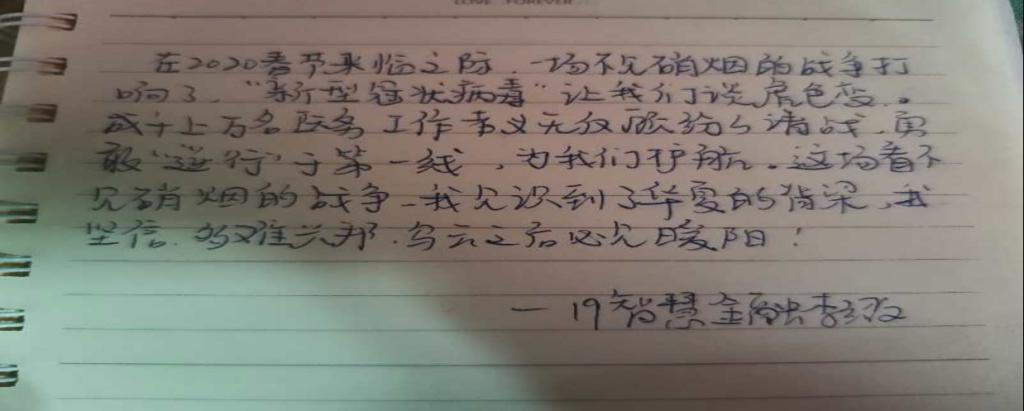 LOVE FOREVER...
在2020春节来临之际,一场不见硝烟的战争打
响了,“新型冠状病毒”让我们谈虐色变。
成千上万名医务工作者义无反顾纷纷请战,勇
敢“逆行”于第一线,为我们护航。这场看不
见硝烟的战争,我见识到了华夏的脊梁,我
坚信,多难兴邦,乌云之后必见暖阳!
—19智慧金融李